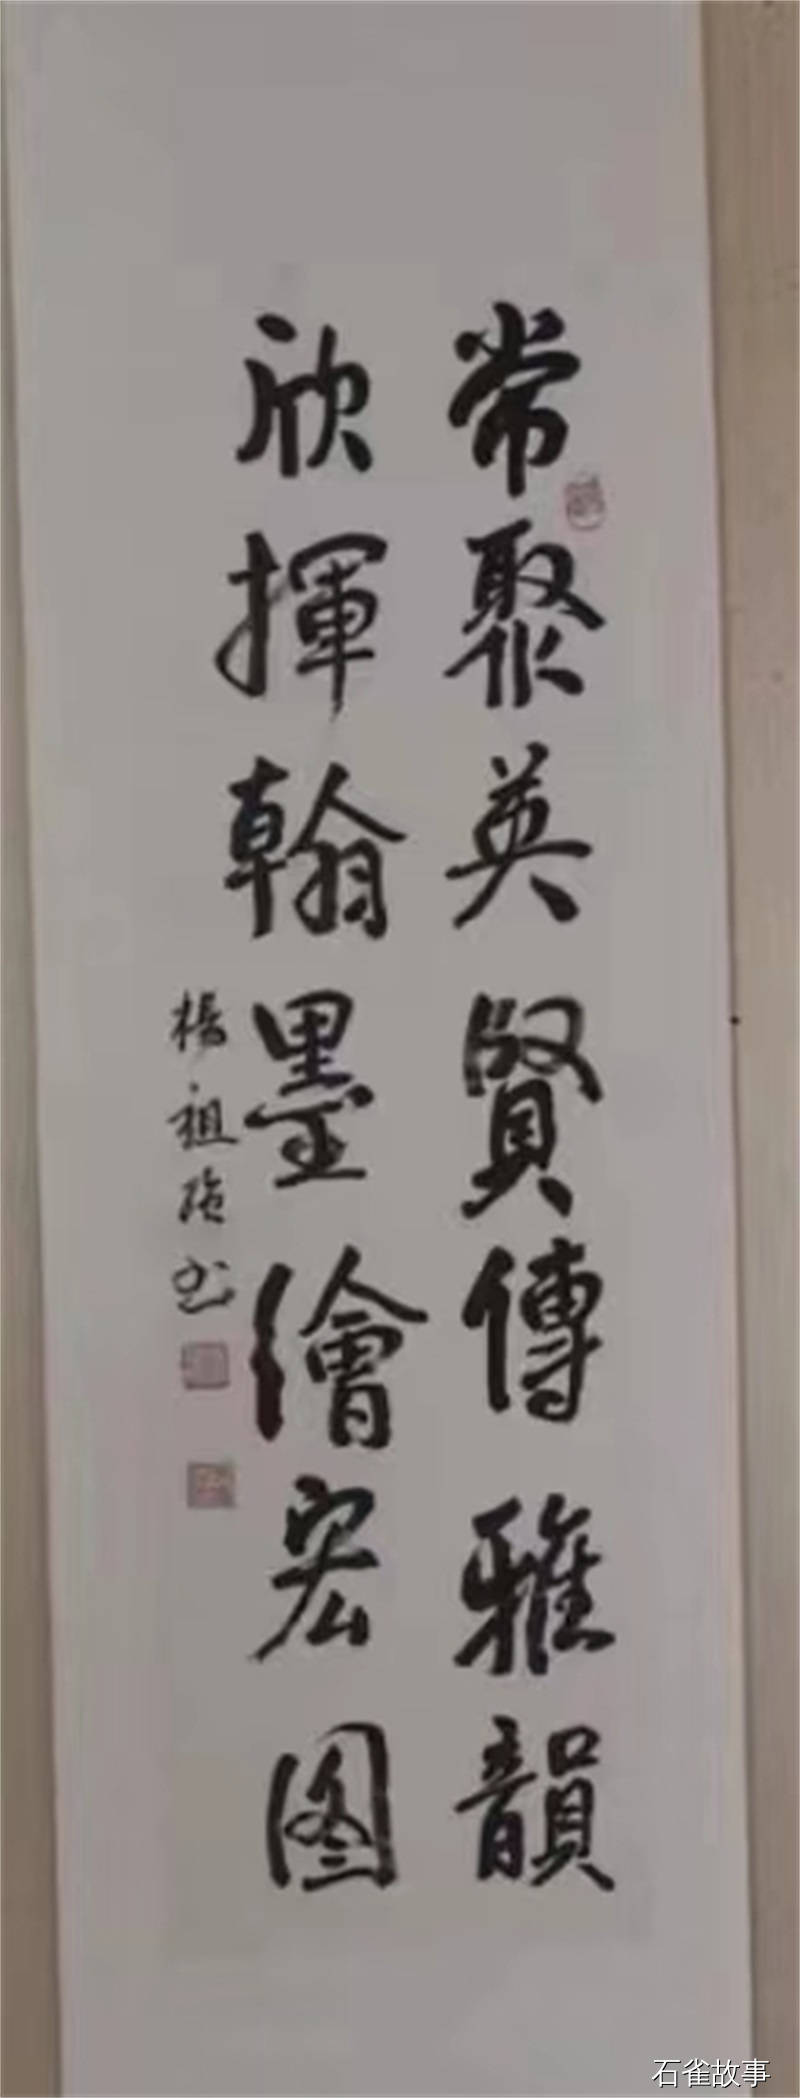 常聚英賢傳雅韻
欣揮翰墨繪宏图
楊祖
石雀故事